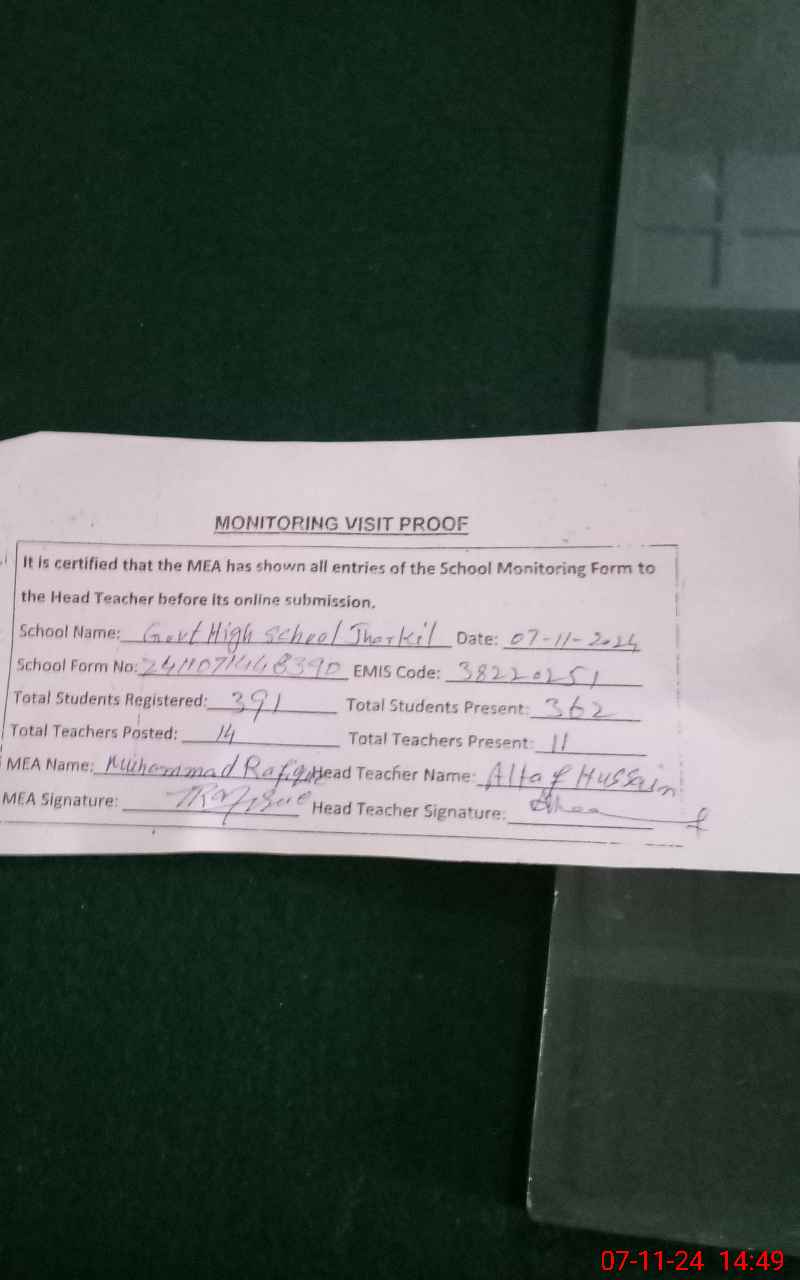 MONITORING VISIT PROOF
It is certified that the MEA has shown all entries of the School Monitoring Form to
the Head Teacher before its online submission.
School Name: Govt High School Tharkil Date: 07-11-2024
School Form No: 2411071448390 EMIS Code: 38220251
Total Students Registered: 391 Total Students Present: 362
Total Teachers Posted: 14 Total Teachers Present: 11
MEA Name: Muhammad Rafique Head Teacher Name: Altaf Hussain
MEA Signature: Head Teacher Signature:
07-11-24 14:49